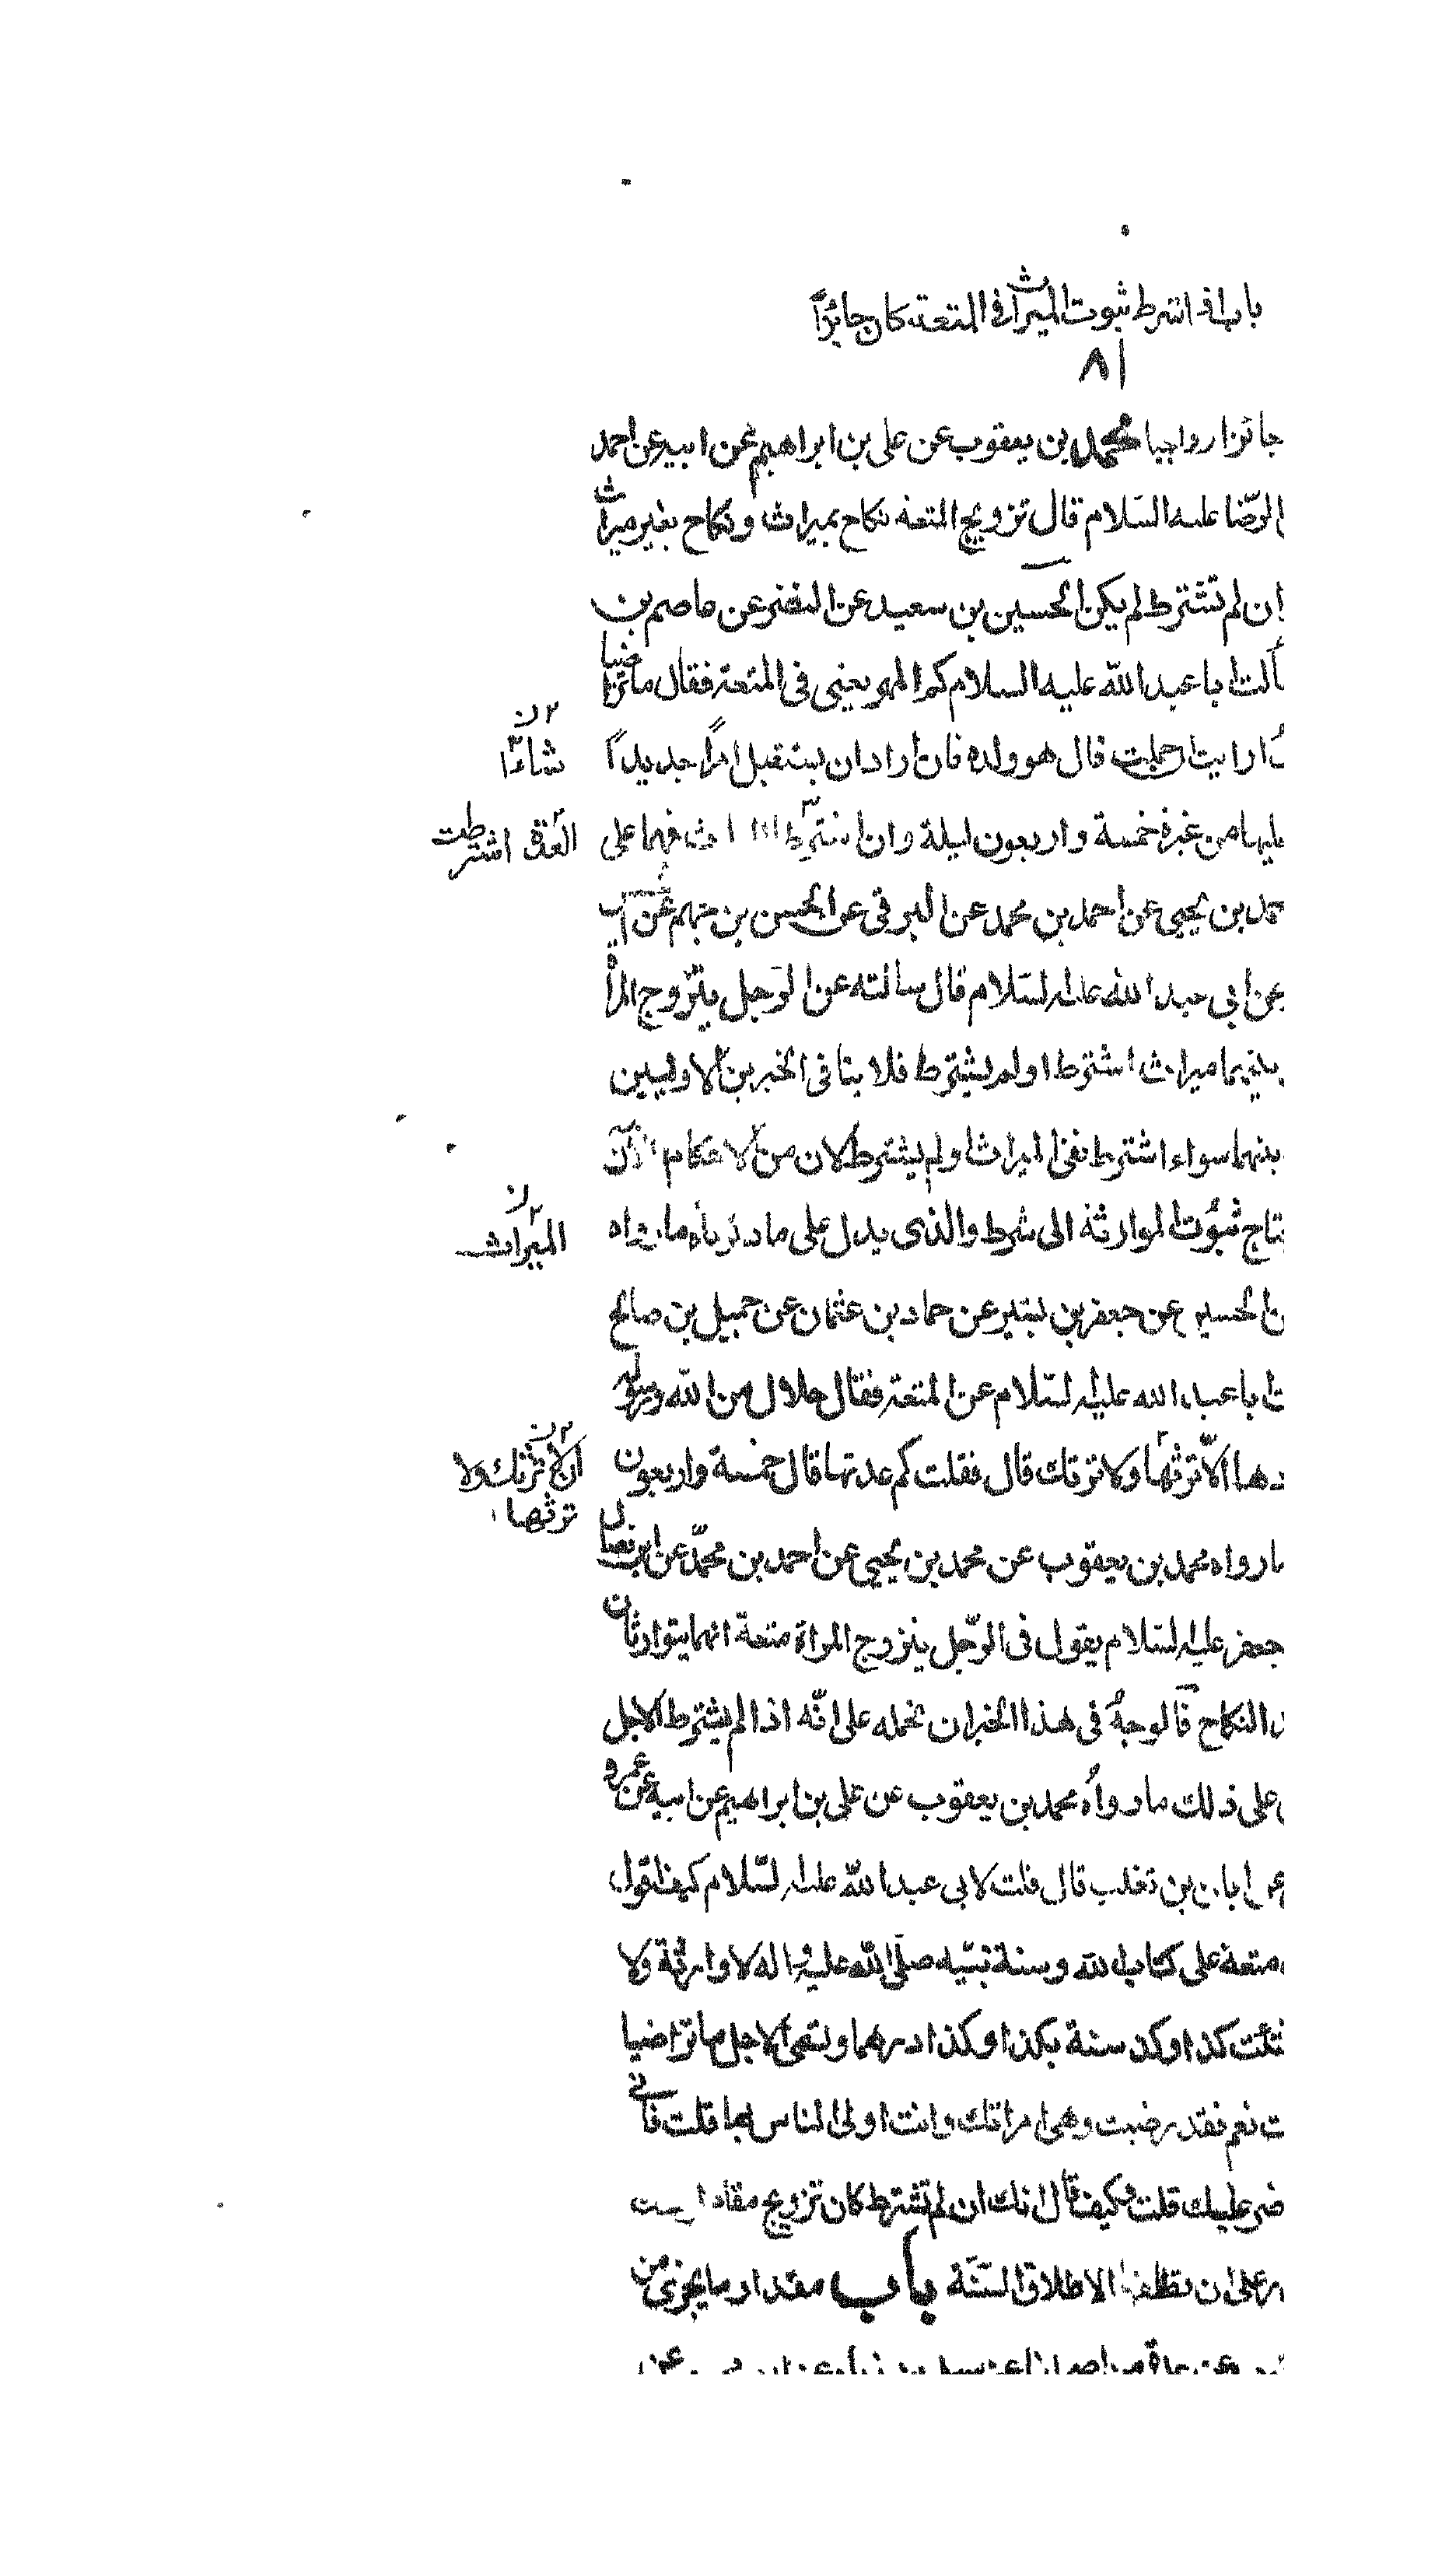 باب اذا اشترط ثبوت الميراث في المتعة كان جائزاً
٨١
جائزا واجبا محمد بن يعقوب عن على بن ابراهيم عن ابيه عن احمد
الرّضا عليه السّلام قال تزويج المتعة نكاح بميراث ونكاح بغير ميراث
ان لم تشترط لم يكن الحسين بن سعيد عن النضر عن عاصم بن
ألت ابا عبد الله عليه السلام كم المهر يعني في المتعة فقال ما تراضيا
ارايت ان حملت قال هو ولده فان اراد ان يستقبل امراً جديداً
٢ ن
شاءا
عليها من غيره خمسة واربعون ليلة وان اشترط فهما على
العدة اشترطت
حمد بن يحيى عن احمد بن محمد عن البرقي عن الحسن بن جهم عن
عن ابي عبد الله عليه السّلام قال سالته عن الرّجل يتزّوج المراة
بينهما ميراث اشترط او لم يشترط فلا ينافى الخبرين الاولين
بينهما سواء اشترط نفى الميراث او لم يشترط لان من الاحكام
تاج ثبُوت الموارثة الى شرط والذى يدل على ما ذكرناه ما رواه
٢ ن
الميراث
الحسين عن جعفر بن بشير عن حماد بن عثمان عن جميل بن صالح
ابا عبد الله عليه السّلام عن المتعة فقال حلال من الله ورسوله
دها الاّ ترثها ولا ترثك قال فقلت كم عدتها قال خمسة واربعون
٢ ن
ان لا ترثك ولا
ترثها
ما رواه محمد بن يعقوب عن محمد بن يحيى عن احمد بن محمّد عن ابن فضال
جعفر عليه السّلام يقول في الرّجل يتزوج المراة متعة انهما يتوارثان
النكاح فالوجهُ في هذا الخبر ان نحمله على انّه اذا لم يشترط الاجل
على ذلك ما رواهُ محمد بن يعقوب عن على بن ابراهيم عن ابيه عن عمرو
عن ابان بن تغلب قال قلت لابي عبد الله عليه السّلام كيف اقول
متعة على كتاب الله وسنة نبيّه صلّى الله عليه واله لا وارثة ولا
شئت كذا وكذا سنة بكذا وكذا درهما وتسمى الاجل ما تراضيا
ت نعم فقد رضيت وهى امراتك وانت اولى الناس بها قلت فاني
ضر عليك قلت وكيف قال انك ان لم تشترط كان تزويج مقام
على ان تطلقها الا طلاق السّنّة باب مقدار ما يجزى من